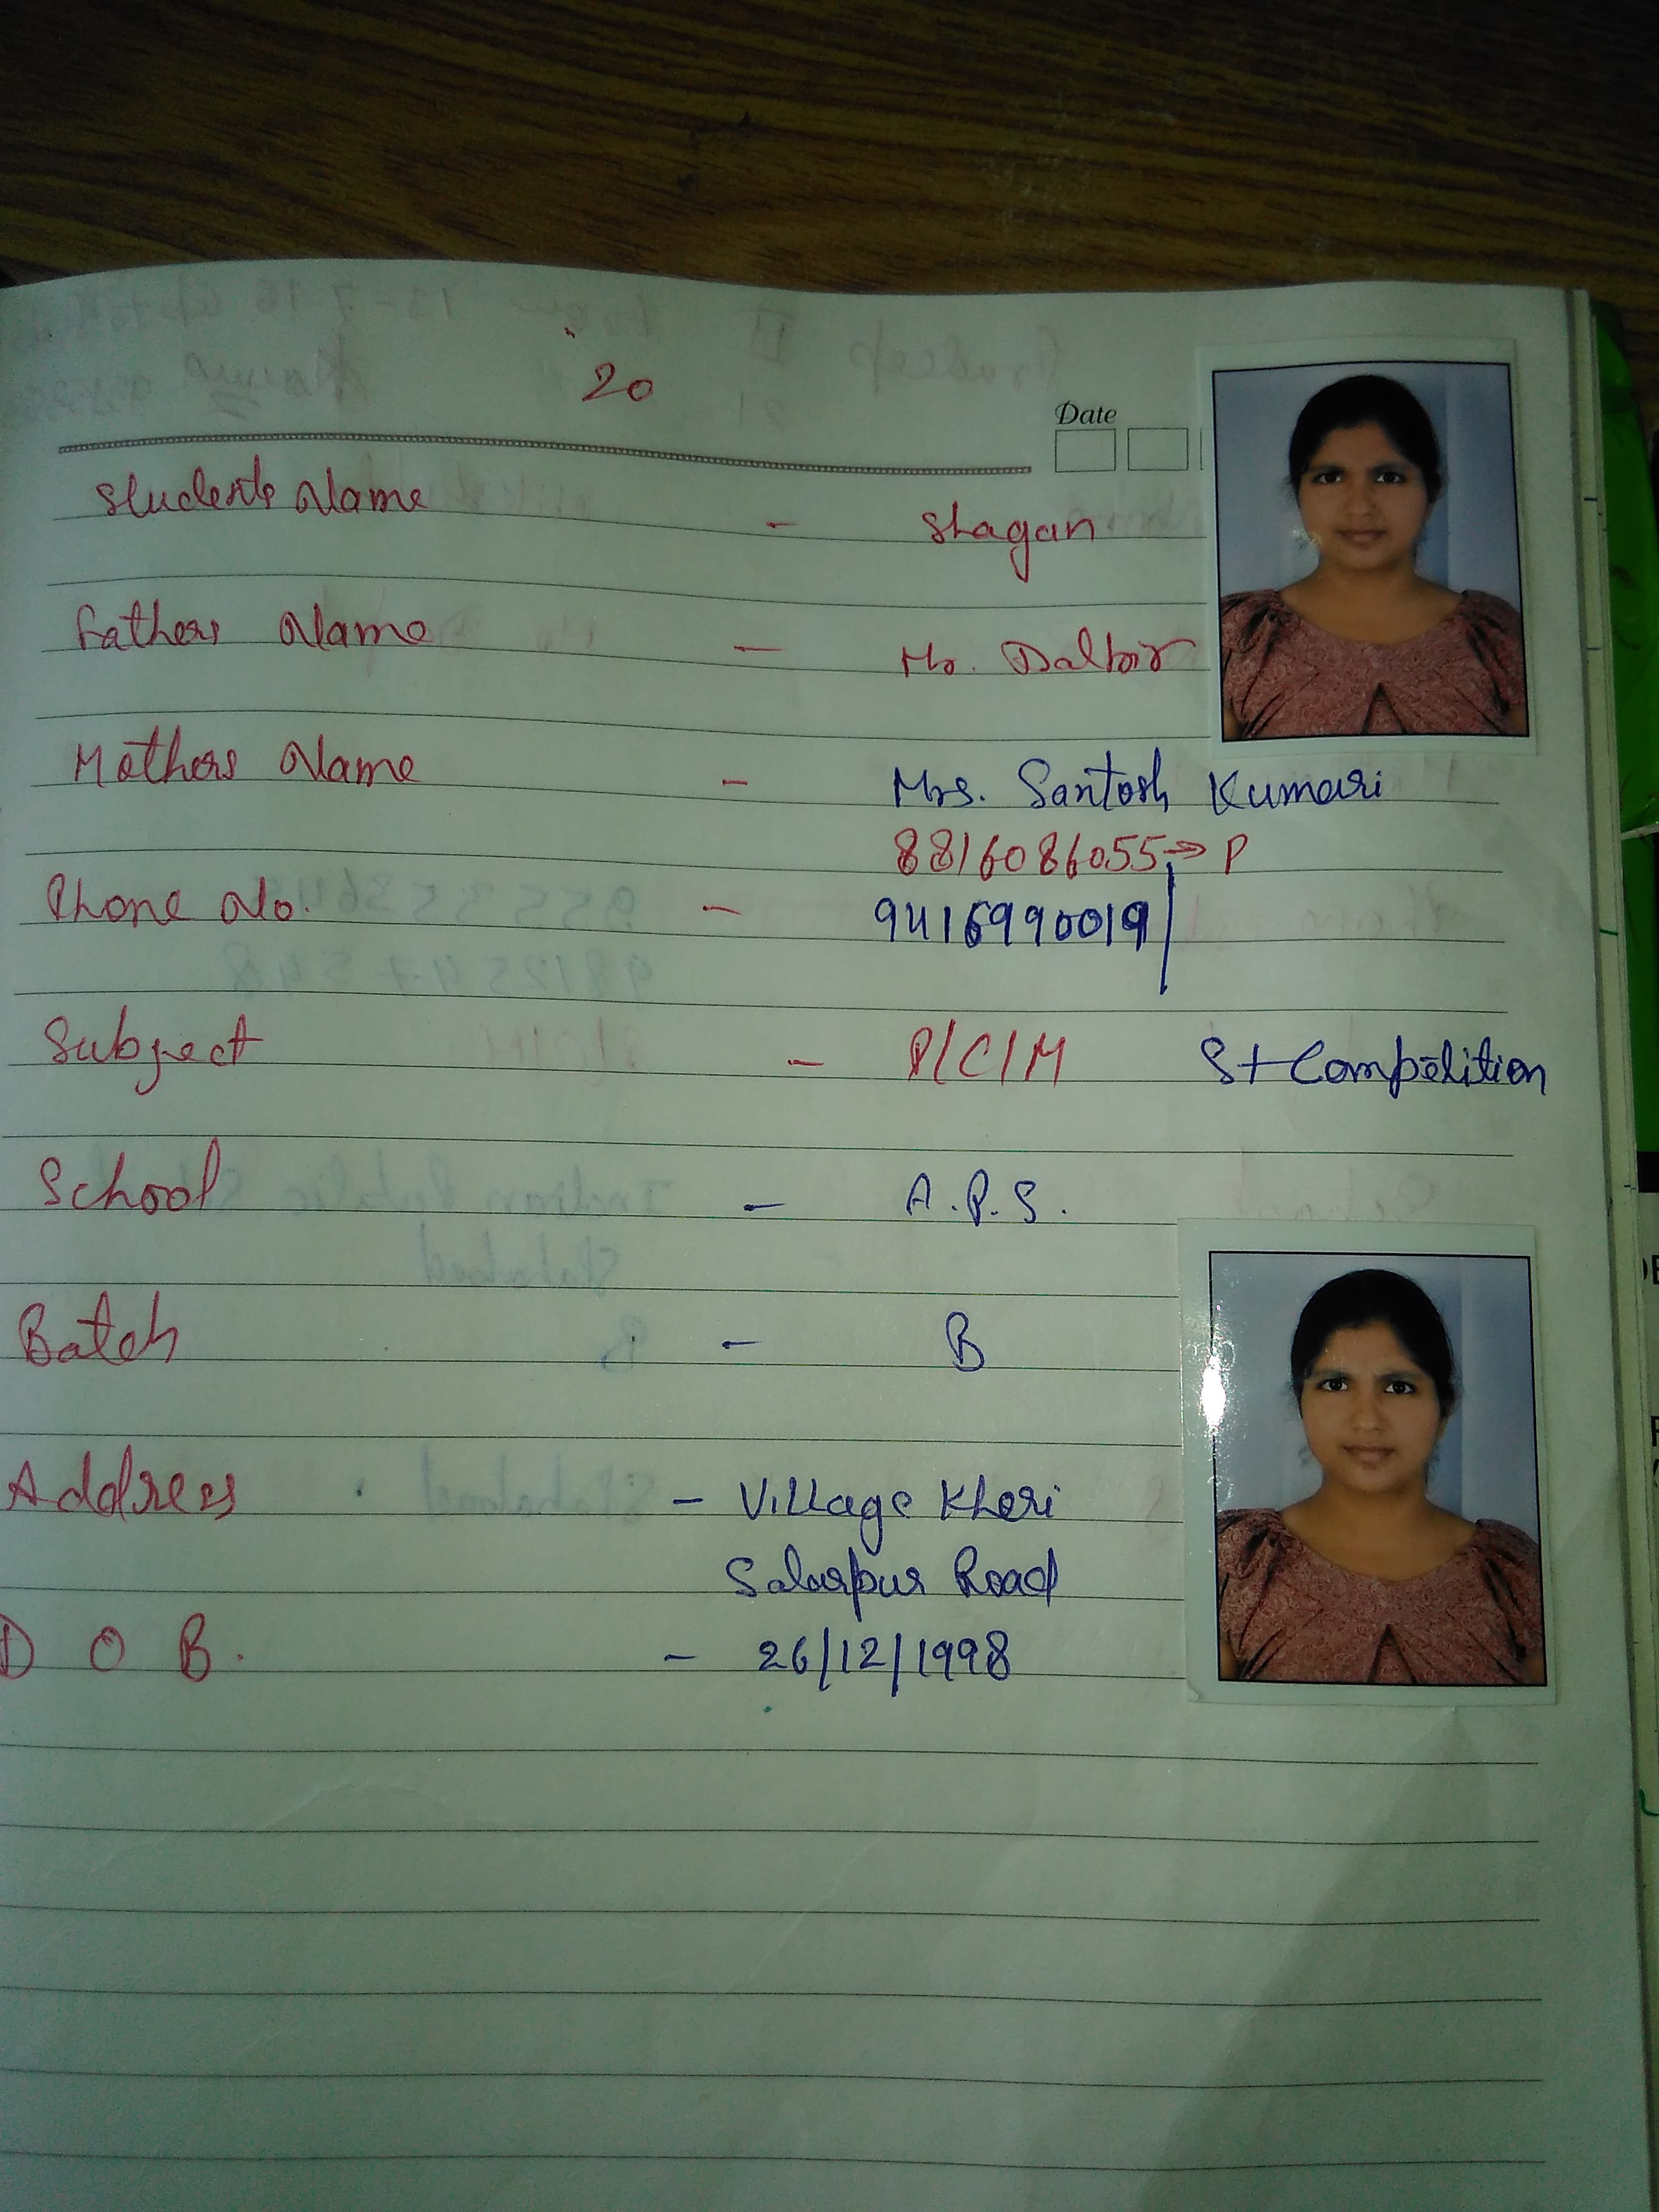 20
Date
Students Name - Shagan
Fathers Name - Mr. Dalbir
Mothers Name - Mrs. Santosh Kumari
8816086055 → P
Phone No. - 9416990019
Subject - P/C/M S+Competition
School - A.P.S.
Batch - B
Address - Village Kheri
Salarpur Road
D O B. - 26/12/1998